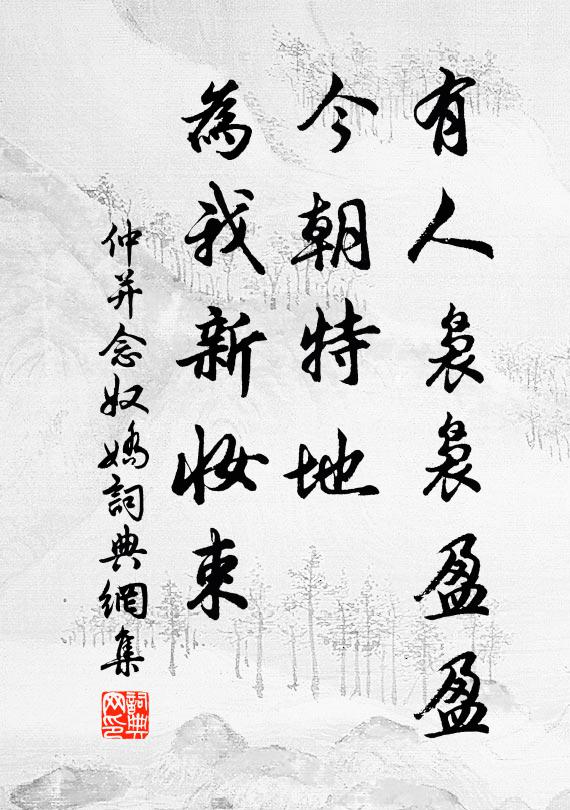 有人裊裊盈盈
今朝特地
為我新妝束
仲并念奴嬌詞典網集
詞典網印